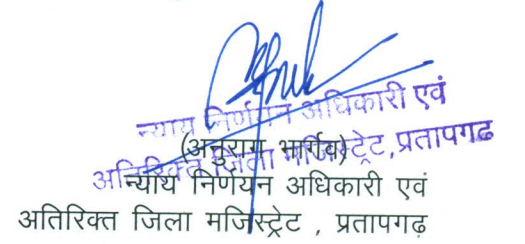 न्याय निर्णयन अधिकारी एवं
अतिरिक्त जिला मजिस्ट्रेट,प्रतापगढ
(अनुराग भार्गव)
न्याय निर्णयन अधिकारी एवं
अतिरिक्त जिला मजिस्ट्रेट , प्रतापगढ़